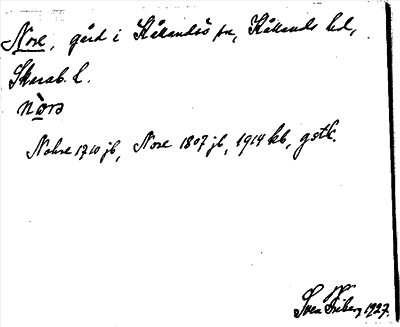 Nore, gård i Kållandsö sn, Kållands hd,
Skarab. l.
nòrə
Nohre 1710 jb, Nore 1807 jb, 1914 kb, gstk.
Sven Friberg 1927.